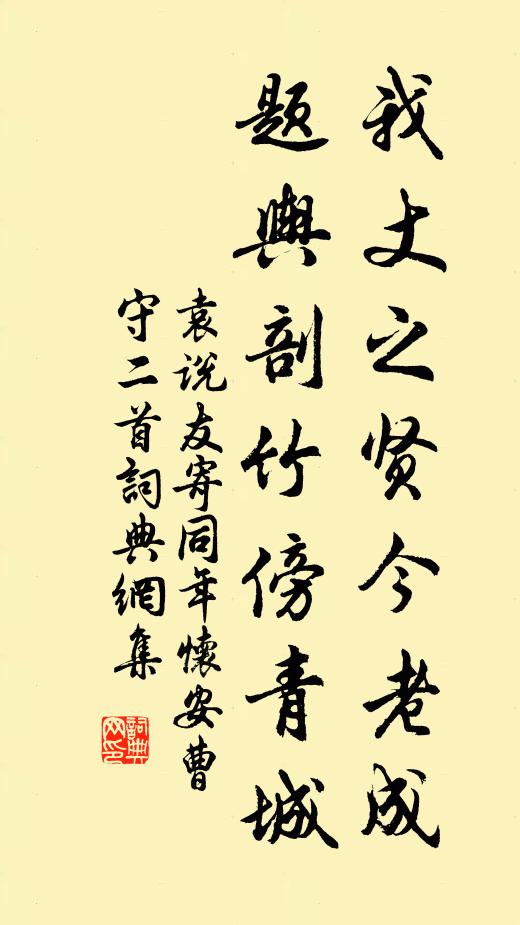 我丈之贤今老成
题舆剖竹傍青城
袁说友寄同年懷安曹
守二首詞典網集
詞典
网印